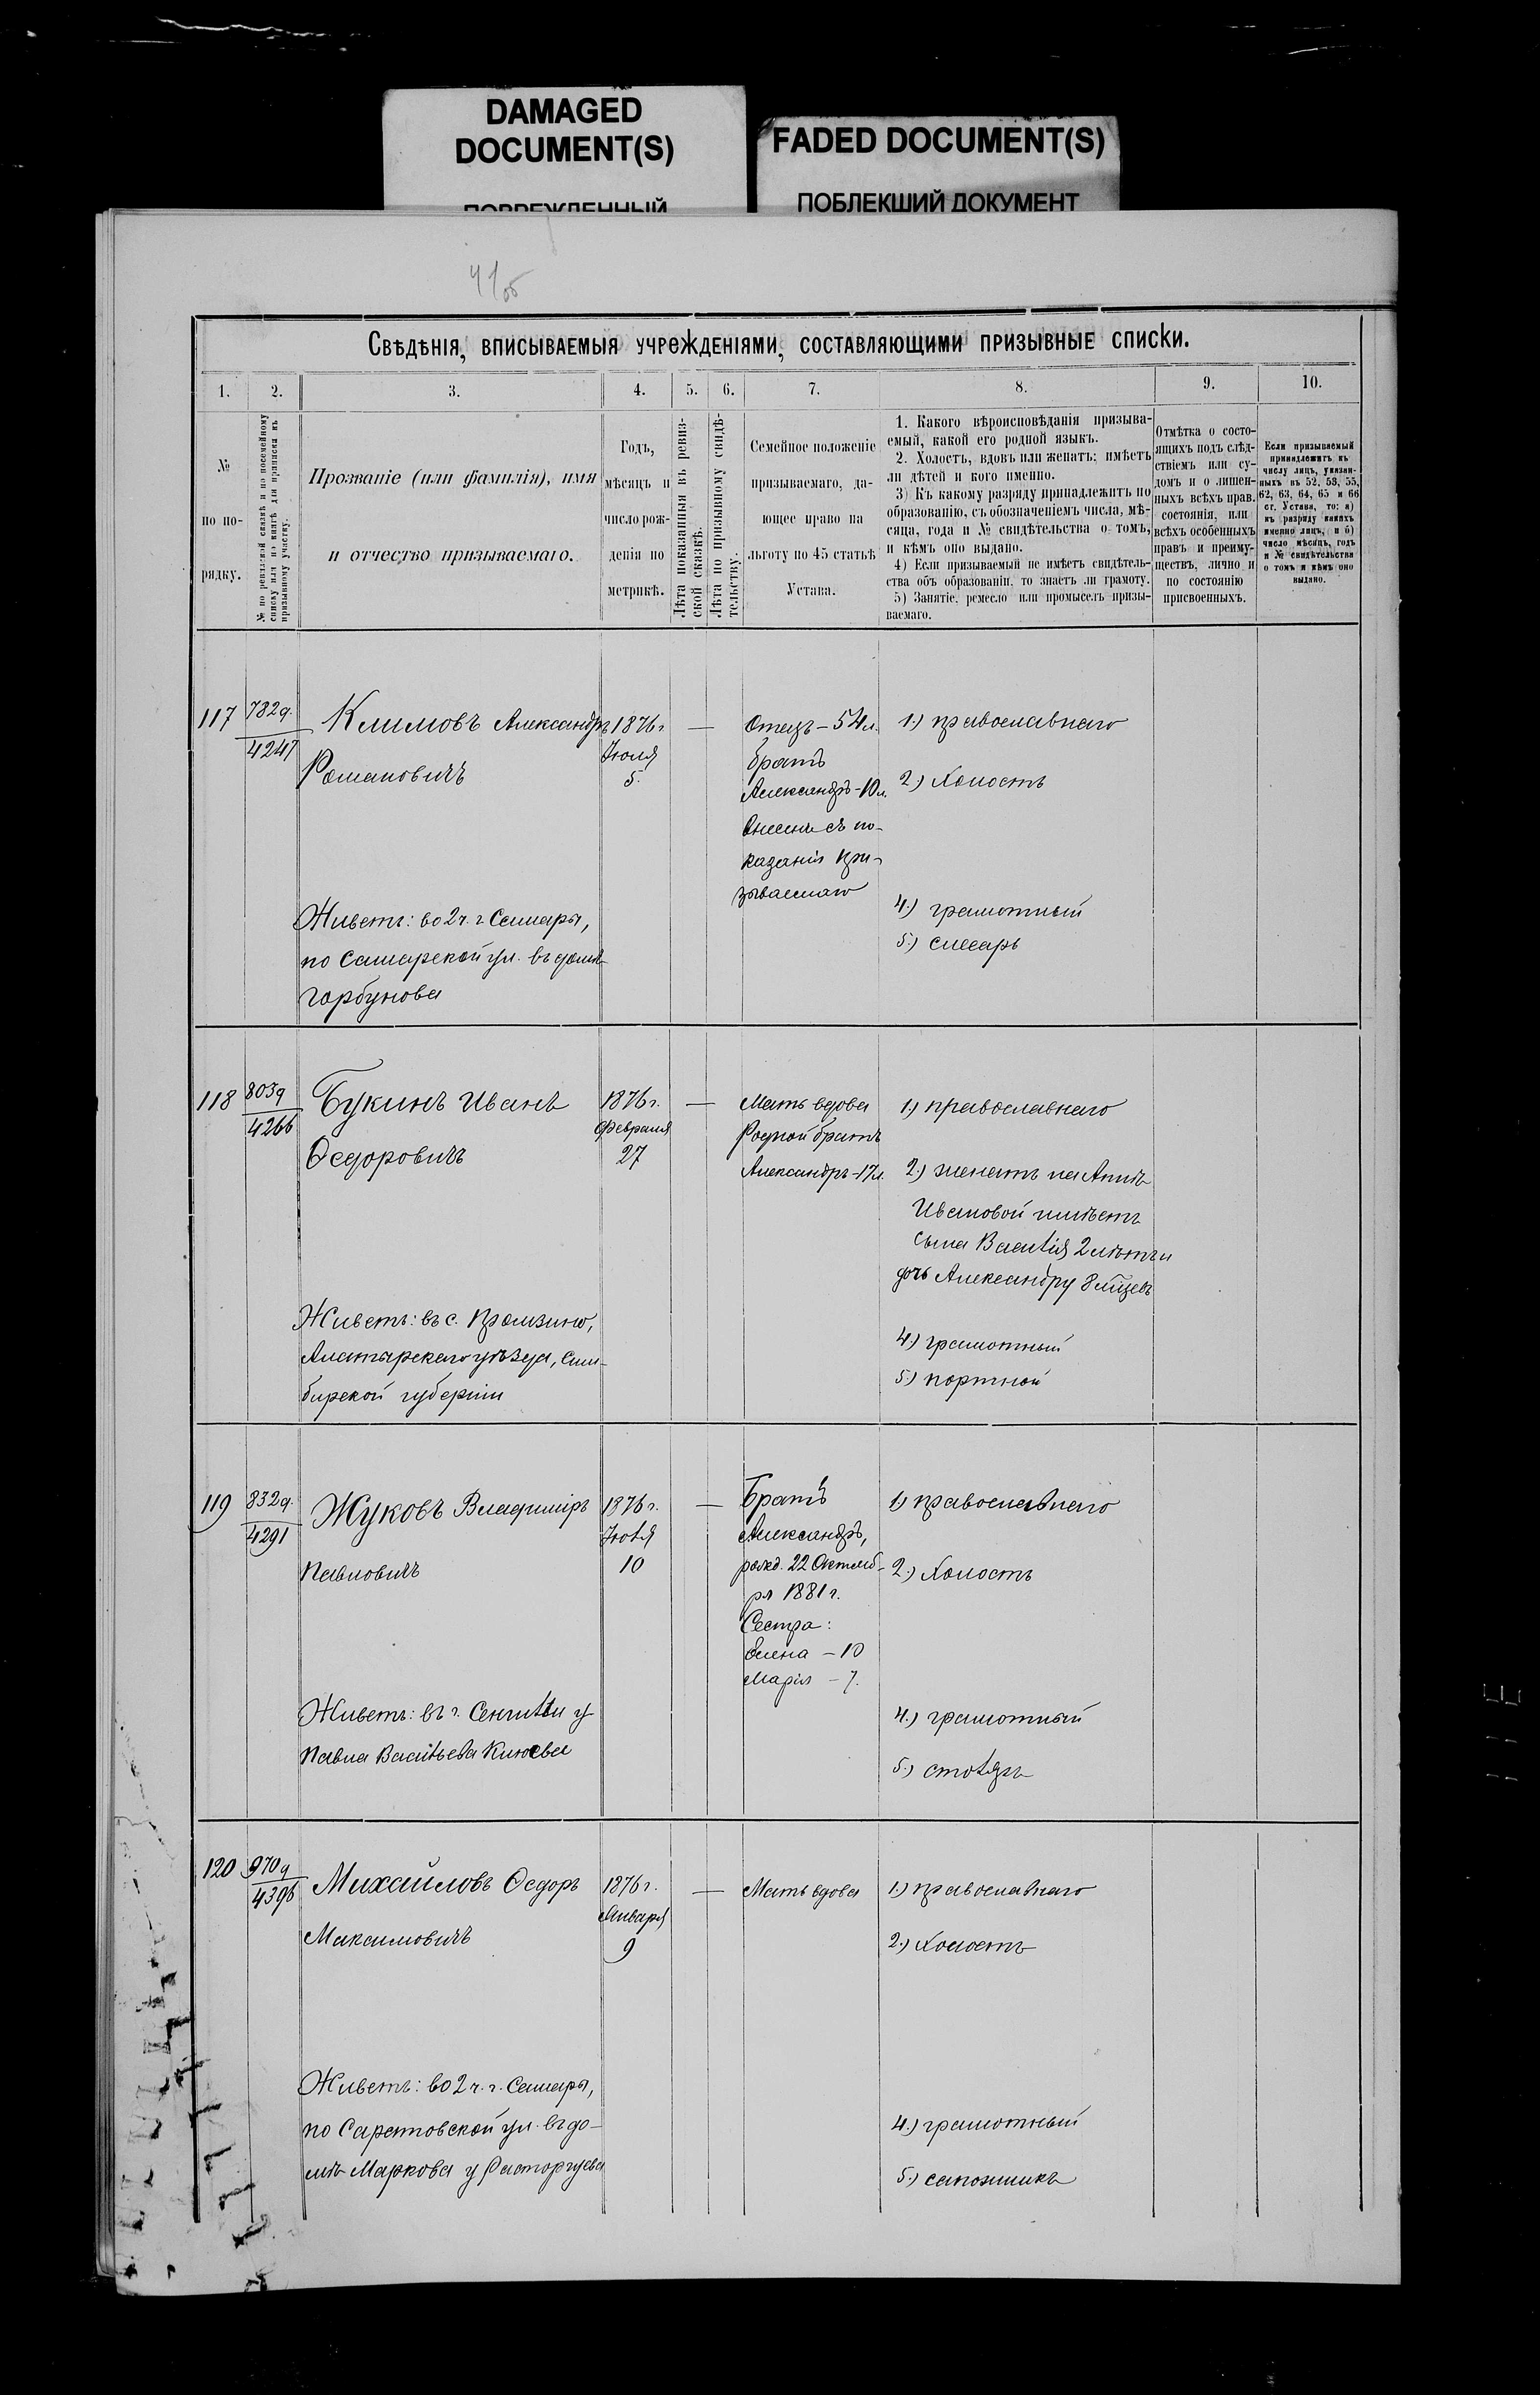 DAMAGED
DOCUMENT(S)
ПОВРЕЖДЕННЫЙ
FADED DOCUMENT(S)
ПОБЛЕКШИЙ ДОКУМЕНТ
41/об
Свѣдѣнія, вписываемыя учрежденіями, составляющими призывные списки.
1. 2. 3. 4. 5. 6. 7. 8. 9. 10.
№
по по-
рядку.
№ по ревизской сказкѣ и по посемейному
списку или по книгѣ для приписки къ
призывному участку.
Прозваніе (или фамилія), имя
и отчество призываемаго.
Годъ,
мѣсяцъ и
число рож-
денія по
метрикѣ.
Лѣта показанныя въ ревиз-
ской сказкѣ.
Лѣта по призывному свидѣ-
тельству.
Семейное положеніе
призываемаго, да-
ющее право на
льготу по 45 статьѣ
Устава.
1. Какого вѣроисповѣданія призыва-
емый, какой его родной языкъ.
2. Холостъ, вдовъ или женатъ; имѣетъ
ли дѣтей и кого именно.
3) Къ какому разряду принадлежитъ по
образованію, съ обозначеніемъ числа, мѣ-
сяца, года и № свидѣтельства о томъ,
и кѣмъ оно выдано.
4) Если призываемый не имѣетъ свидѣтель-
ства объ образованіи, то знаетъ ли грамоту.
5) Занятіе, ремесло или промыселъ призы-
ваемаго.
Отмѣтка о состо-
ящихъ подъ слѣд-
ствіемъ или су-
домъ и о лишен-
ныхъ всѣхъ прав.
состоянія, или
всѣхъ особенныхъ
правъ и преиму-
ществъ, лично и
по состоянію
присвоенныхъ.
Если призываемый
принадлежитъ къ
числу лицъ, указан-
ныхъ въ 52, 53, 55,
62, 63, 64, 65 и 66
ст. Устава, то: а)
къ разряду какихъ
именно лицъ, и б)
число мѣсяцъ, годъ
и № свидѣтельства
о томъ и кѣмъ оно
выдано.
117
782 д.
4247
Климовъ Александръ
Романовичъ
Живетъ: во 2 ч. г. Самары,
по Самарской ул. въ домѣ
Горбунова
1876 г.
Іюля
5.
—
Отецъ – 54 л.
братъ
Александръ – 10 л.
Внесенъ съ по-
казанія при-
зываемаго
1.) православнаго
2.) Холостъ
4.) грамотный
5.) слесарь
118
803 д
4266
Букинъ Иванъ
Ѳедоровичъ
Живетъ: въ с. Промзино,
Алатырскаго уѣзда, Сим-
бирской губерніи
1876 г.
Февраля
27
—
Мать вдова
Родной братъ
Александръ – 17 л.
1.) православнаго
2.) женатъ на Аннѣ
Ивановой имѣетъ
сына Василія 2 лѣтъ и
дочь Александру 8 мѣсяцевъ
4.) грамотный
5.) портной
119
832 д.
4291
Жуковъ Владиміръ
Павловичъ
Живетъ: въ г. Сенгилѣи у
Павла Васильева Клюева
1876 г.
Іюля
10
—
Братъ
Александръ,
рожд. 22 Октяб-
ря 1881 г.
Сестра:
Елена – 10
Марія – 7.
1.) православнаго
2.) Холостъ
4.) грамотный
5.) столяръ
120
970 д
4396
Михайловъ Ѳедоръ
Максимовичъ
Живетъ: во 2 ч. г. Самары,
по Саратовской ул. въ до-
мѣ Маркова у Расторгуева
1876 г.
Января
9
—
Мать вдова
1.) православнаго
2.) Холостъ
4.) грамотный
5.) сапожникъ